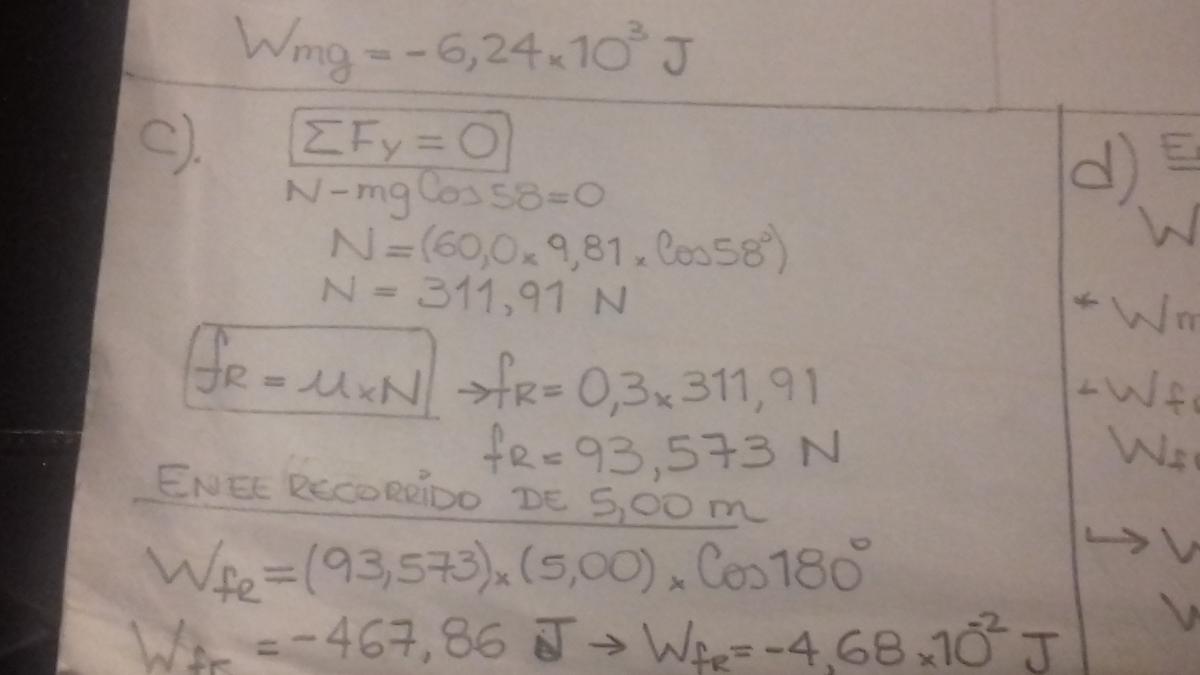 Wmg = -6,24×10³ J
c). ΣFy = 0
N-mgCos58=0
N=(60,0×9,81×Cos58°)
N = 311,91 N
fR = μ×N →fR= 0,3×311,91
fR= 93,573 N
EN EL RECORRIDO DE 5,00 m
WfR=(93,573)×(5,00)×Cos180°
WfR = -467,86 J → WfR=-4,68×10⁻² J
d)
W
* Wm
+Wf
Wf
→ W
W